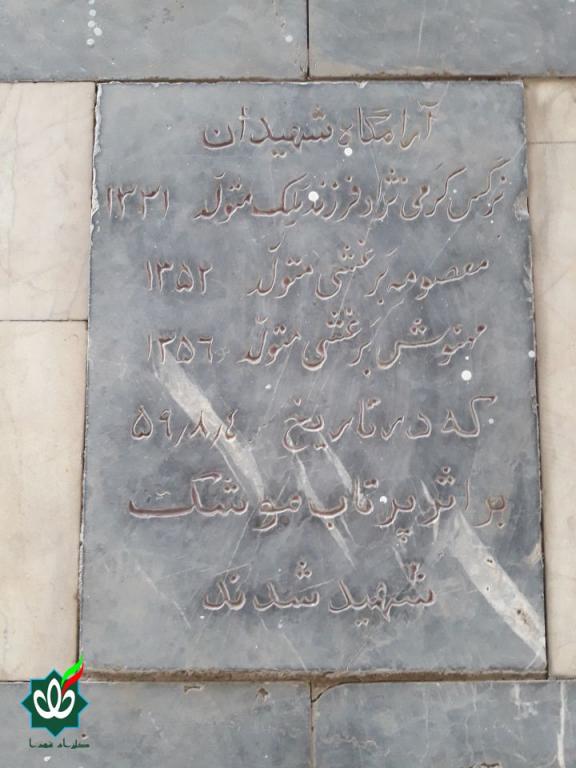 آرامگاه شهیدان
نرگس کرمی نژاد فرزند یلک متولد ۱۳۳۱
معصومه برغشی متولد ۱۳۵۲
مهنوش برغشی متولد ۱۳۵۶
که در تاریخ ۵۹/۸/۴
بر اثر پرتاب موشک
شهید شدند
گلزار شهدا